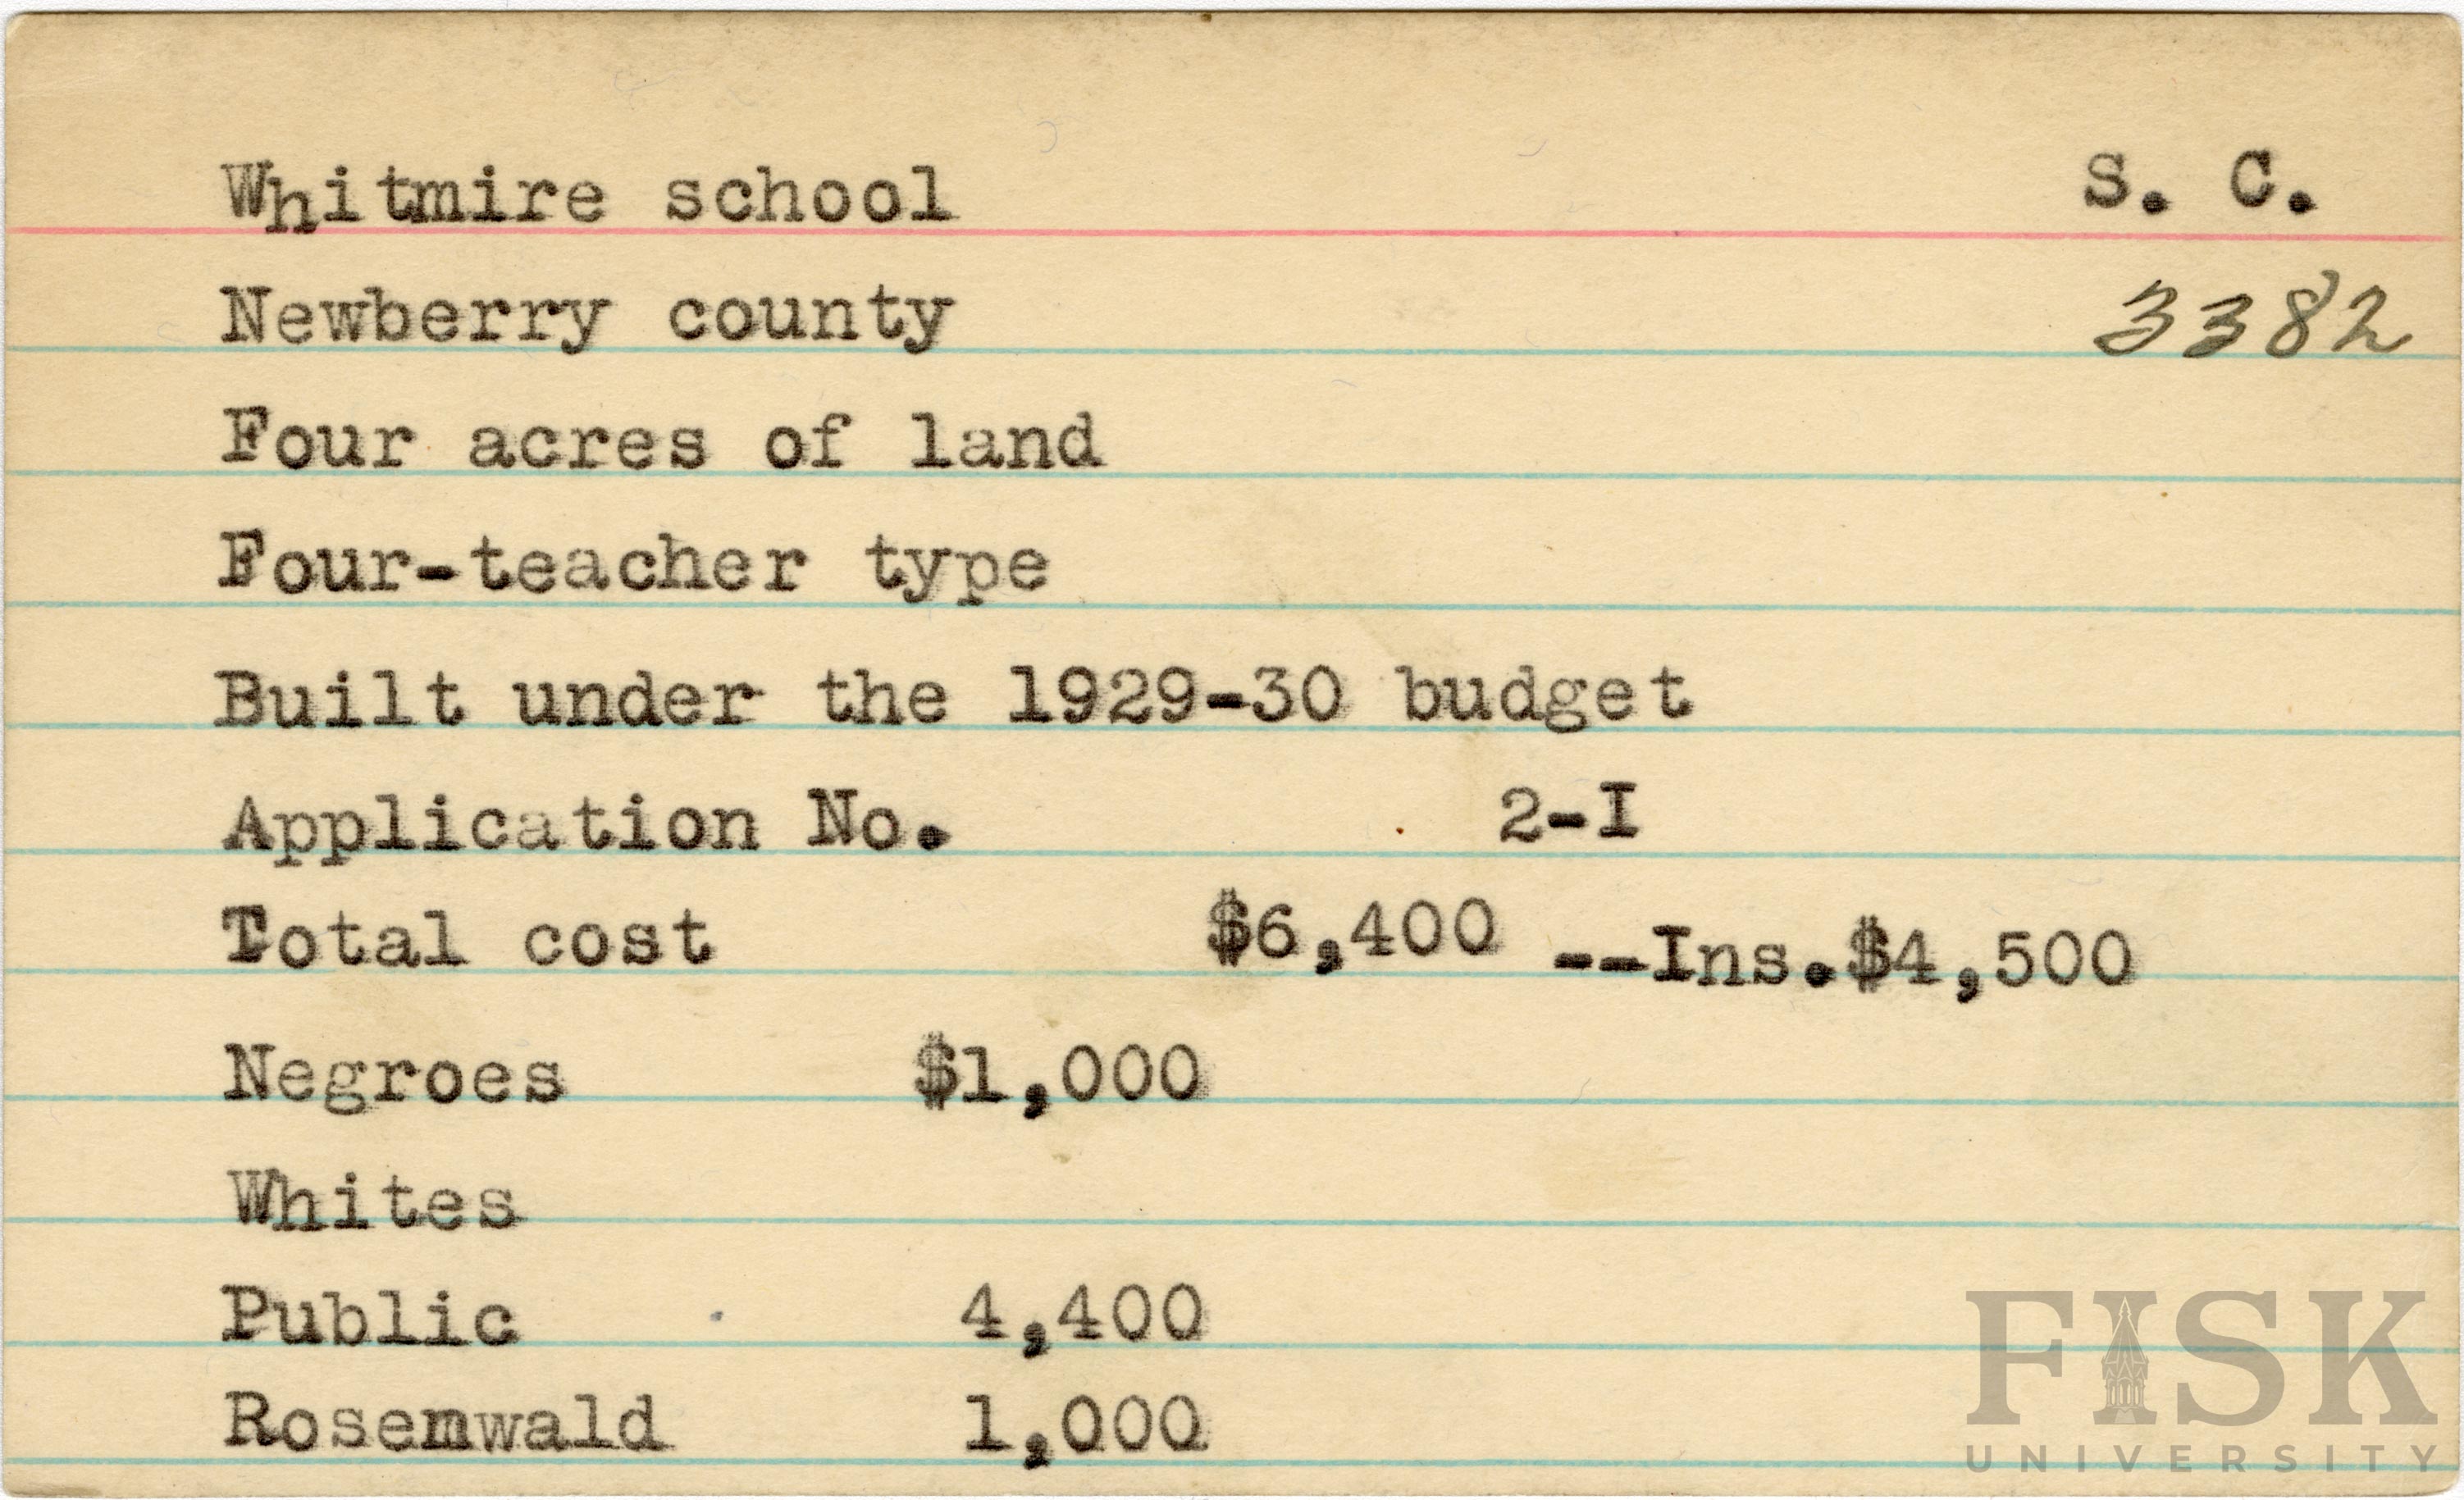 Whitmire school S. C.
Newberry county 3382
Four acres of land
Four-teacher type
Built under the 1929-30 budget
Application No. 2-I
Total cost $6,400 --Ins.$4,500
Negroes $1,000
Whites
Public 4,400
Rosenwald 1,000
FISK
UNIVERSITY